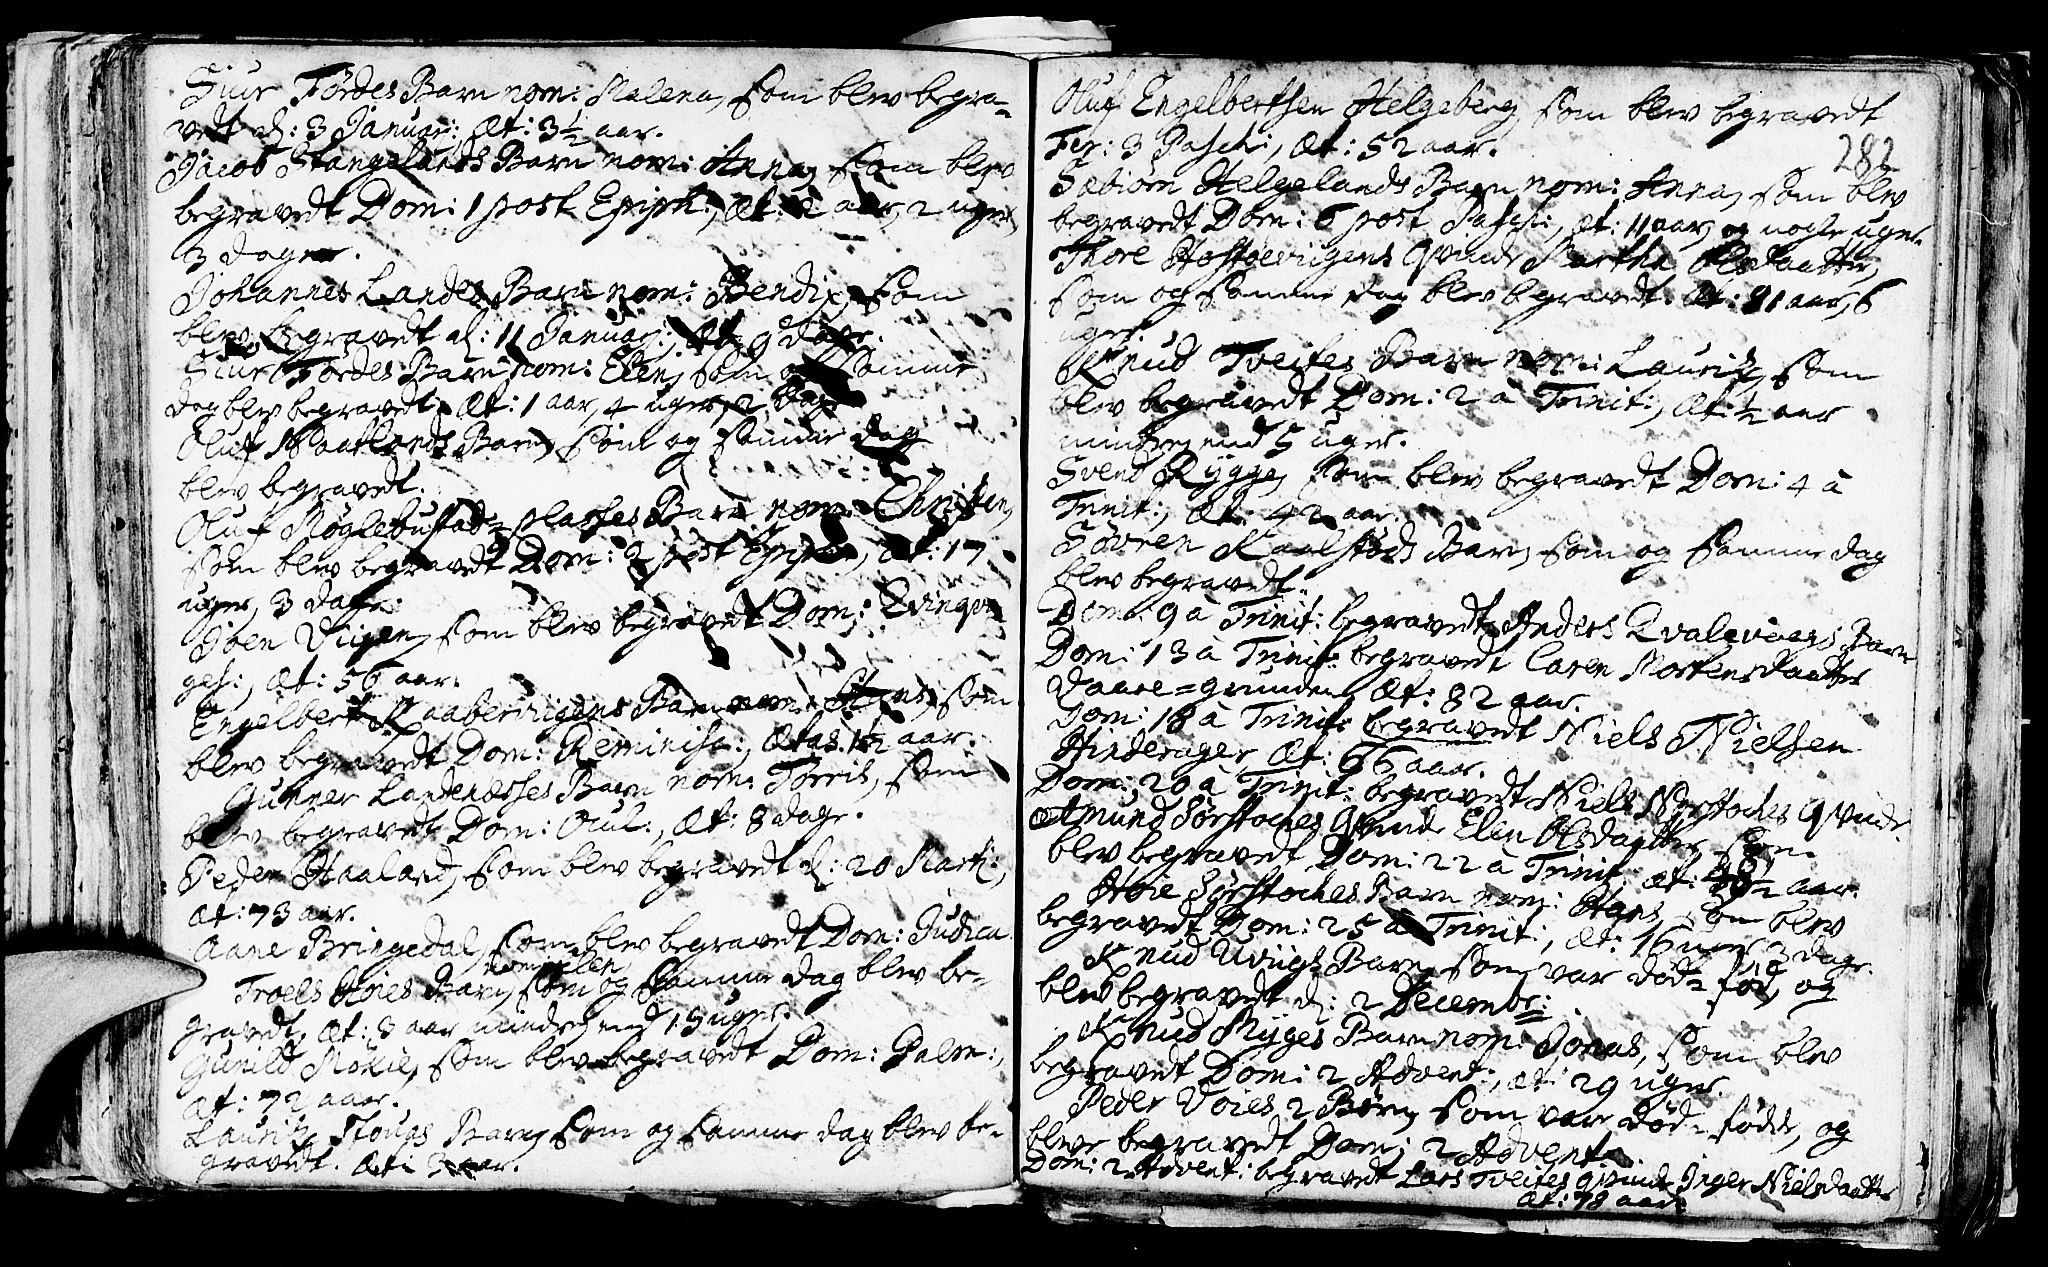 Siur Førdes Barn nom: Malena, som blev begra-
vedt d: 3 Januar: Æt: 3½ aar.
Jacob Stangelands Barn nom: Anna, som blev
begravedt Dom: 1 post Epiph:, Æt: 2 aar, 2 uger,
3 dager.
Johannes Landes Barn nom: Bendix, som
blev begravedt d: 11 Januar:, Æt: 9 dage.
Siur Førdes Barn nom: Elen, som og samme
dag blev begravedt, Æt: 1 aar, 4 uger, 2 dage
Oluf Waatlands Barn, som og samme dag
blev begravedt.
Oluf Møglebustad-plasses Barn nom: Christen,
som blev begravedt Dom: 2 post Epiph:, Æt: 17
uger, 3 dage.
Joen Viigen, som blev begravedt Dom: Qvinqva
ges:, Æt: 56 aar.
Engelbert Raaberviigens Barn nom: som
blev begravedt Dom: Reminisc:, Ætas. 1½ aar.
Gunner Landenæsses Barn nom: Torris, som
blev begravedt Dom: Ocul:, Æt: 8 dage.
Peder Haaland, som blev begravedt d: 20 Marti:,
Æt: 73 aar.
Aane Bringedal, som blev begravedt Dom: Judica
nom: Elen
Troels Høies Barn, som og samme dag blev be-
gravedt, Æt: 8 aar mindre end 15 uger.
Gunild Mokie, som blev begravedt Dom: Palm:,
Æt: 72 aar.
Lauritz Stougs Barn, som og samme dag blev be-
gravedt. Æt: 3 aar.
282
Oluf Engelbertsen Helgeberg, som blev begravedt
Fer: 3 Pasch:, Æt: 52 aar.
Sæbiørn Helgelands Barn nom: Anna, som blev
begravedt Dom: 6 post Pasch:, Æt: 11 aar, og nogle uger.
Thore Hostøeviigens Qvinde Martha Olsdaatter,
som og samme dag blev begravedt. Æt: 81 aar, 6
uger.
Knud Tveites Barn nom: Lauritz, som
blev begravedt Dom: 2 à Trinit:, Æt: ½ aar
mindre end 5 uger.
Svend Rygge, som blev begravedt Dom: 4 à
Trinit:, Æt: 42 aar.
Søvren Kaalstøds Barn, som og samme dag
blev begravedt.
Dom: 9 à Trinit: begravedt Anders Qvalevaags Barn
Dom: 13 à Trinit: begravedt Caren Mortensdaatter
Daare-grunden, Æt: 82 aar.
Dom: 18 à Trinit: begravedt Niels Nielsen
Hinderager, Æt: 66 aar.
Dom: 20 à Trinit: begravedt Niels Nørstoches Qvinde
Amund Sørstoches Qvinde Elen Olsdaatter, som
blev begravedt Dom: 22 à Trinit: Æt: aar.
Høie Sørstoches Barn nom: Hans, som blev
begravedt Dom: 25 à Trinit:, Æt: 16 uger, 3 dage.
Knud Uviigs Barn, som var død-fød, og
blev begravedt d: 2 Decembr:
Knud Myges Barn nom: Jonas, som blev
begravedt Dom: 2 Advent:, Æt: 29 uger.
Peder Voies 2 Børn, som vare død-fødde, og
bleve begravedt Dom: 2 Advent:
Dom: 2 Advent: begravedt Lars Tveites qvinde Inger Nielsdaatter
Æt: 78 aar.